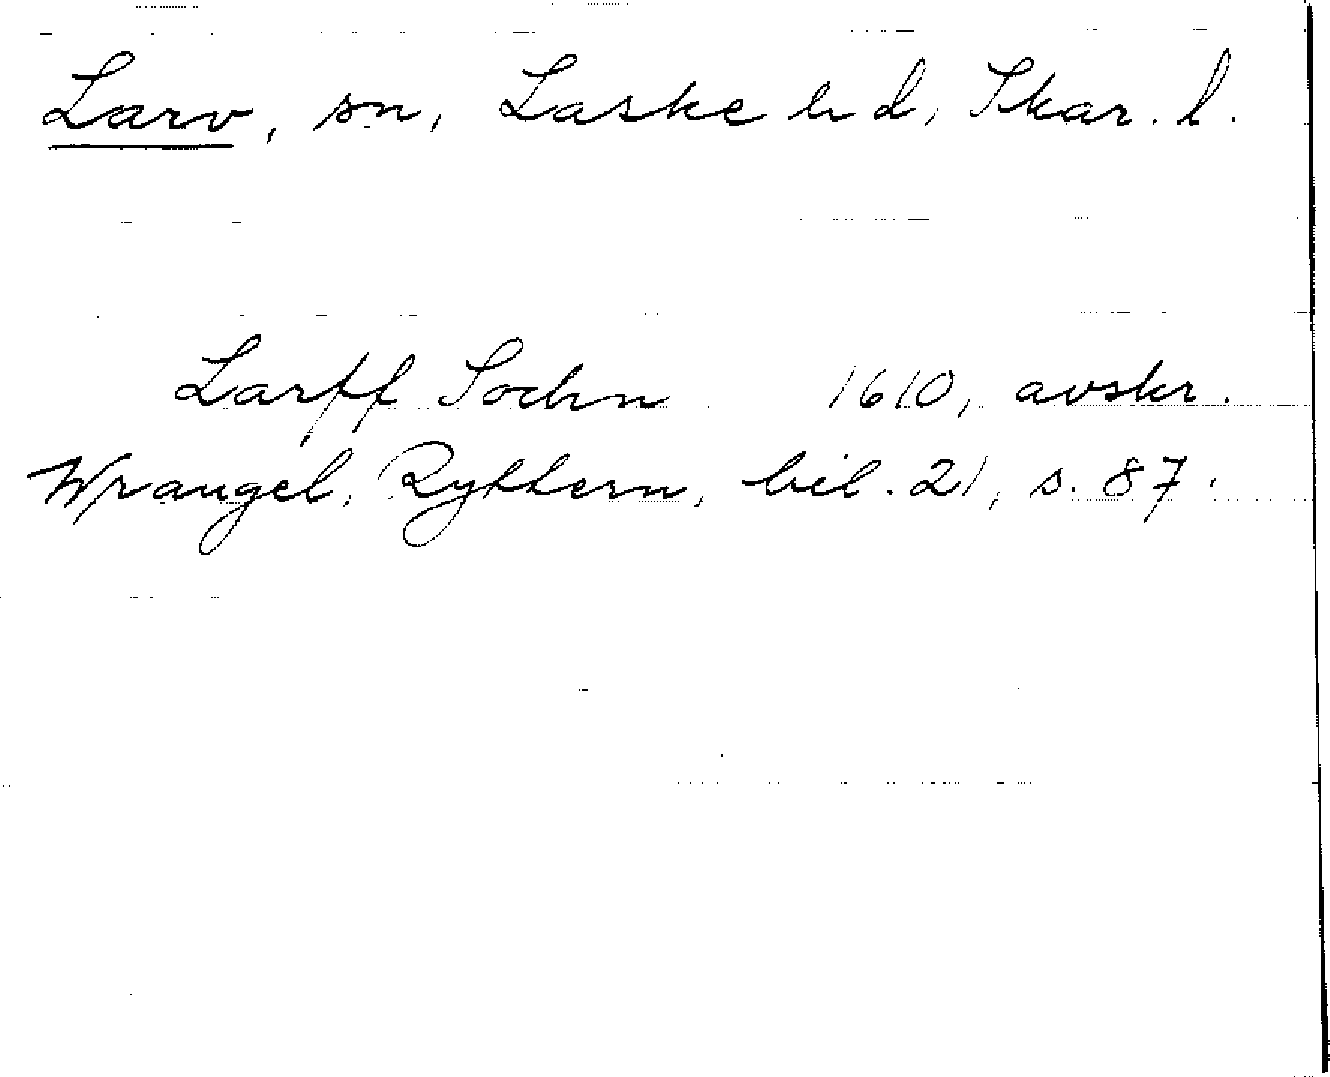 Larv, sn, Laske hd, Skar. l.
Larff Sochn 1610, avskr.
Wrangel, Rytthern, bil. 21, s. 87.